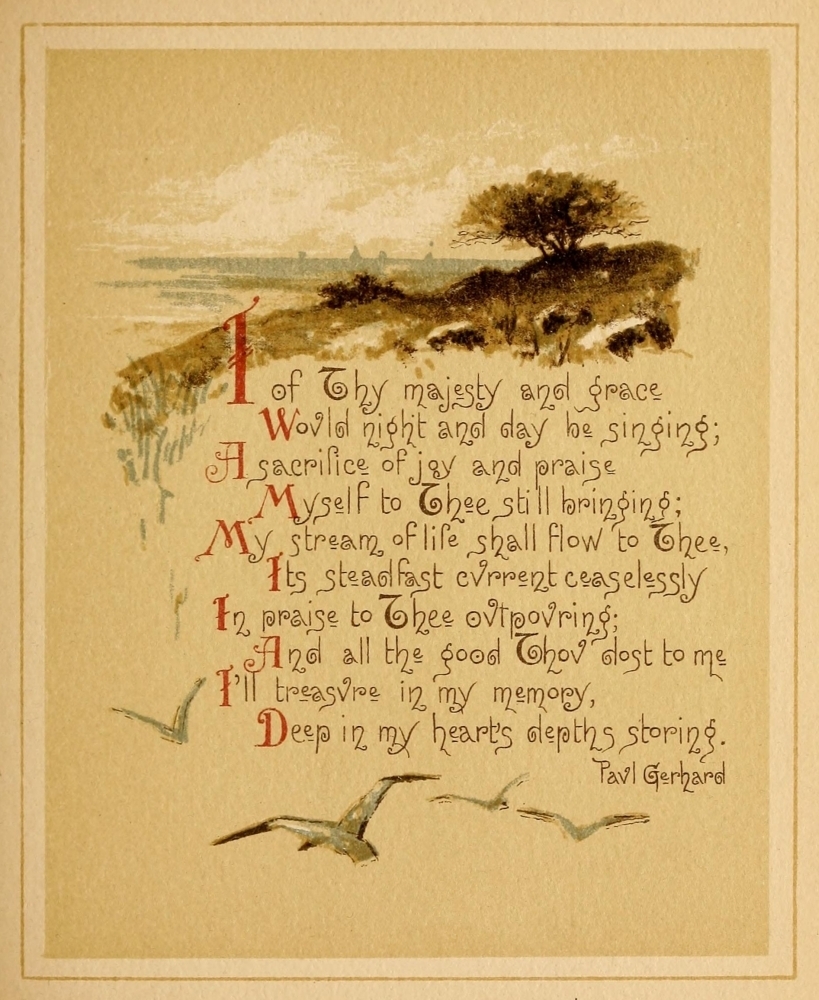 I of Thy majesty and grace
Would night and day be singing;
A sacrifice of joy and praise
Myself to Thee still bringing;
My stream of life shall flow to Thee,
Its steadfast current ceaselessly
In praise to Thee outpouring;
And all the good Thou dost to me
I'll treasure in my memory,
Deep in my heart's depths storing.
Paul Gerhard